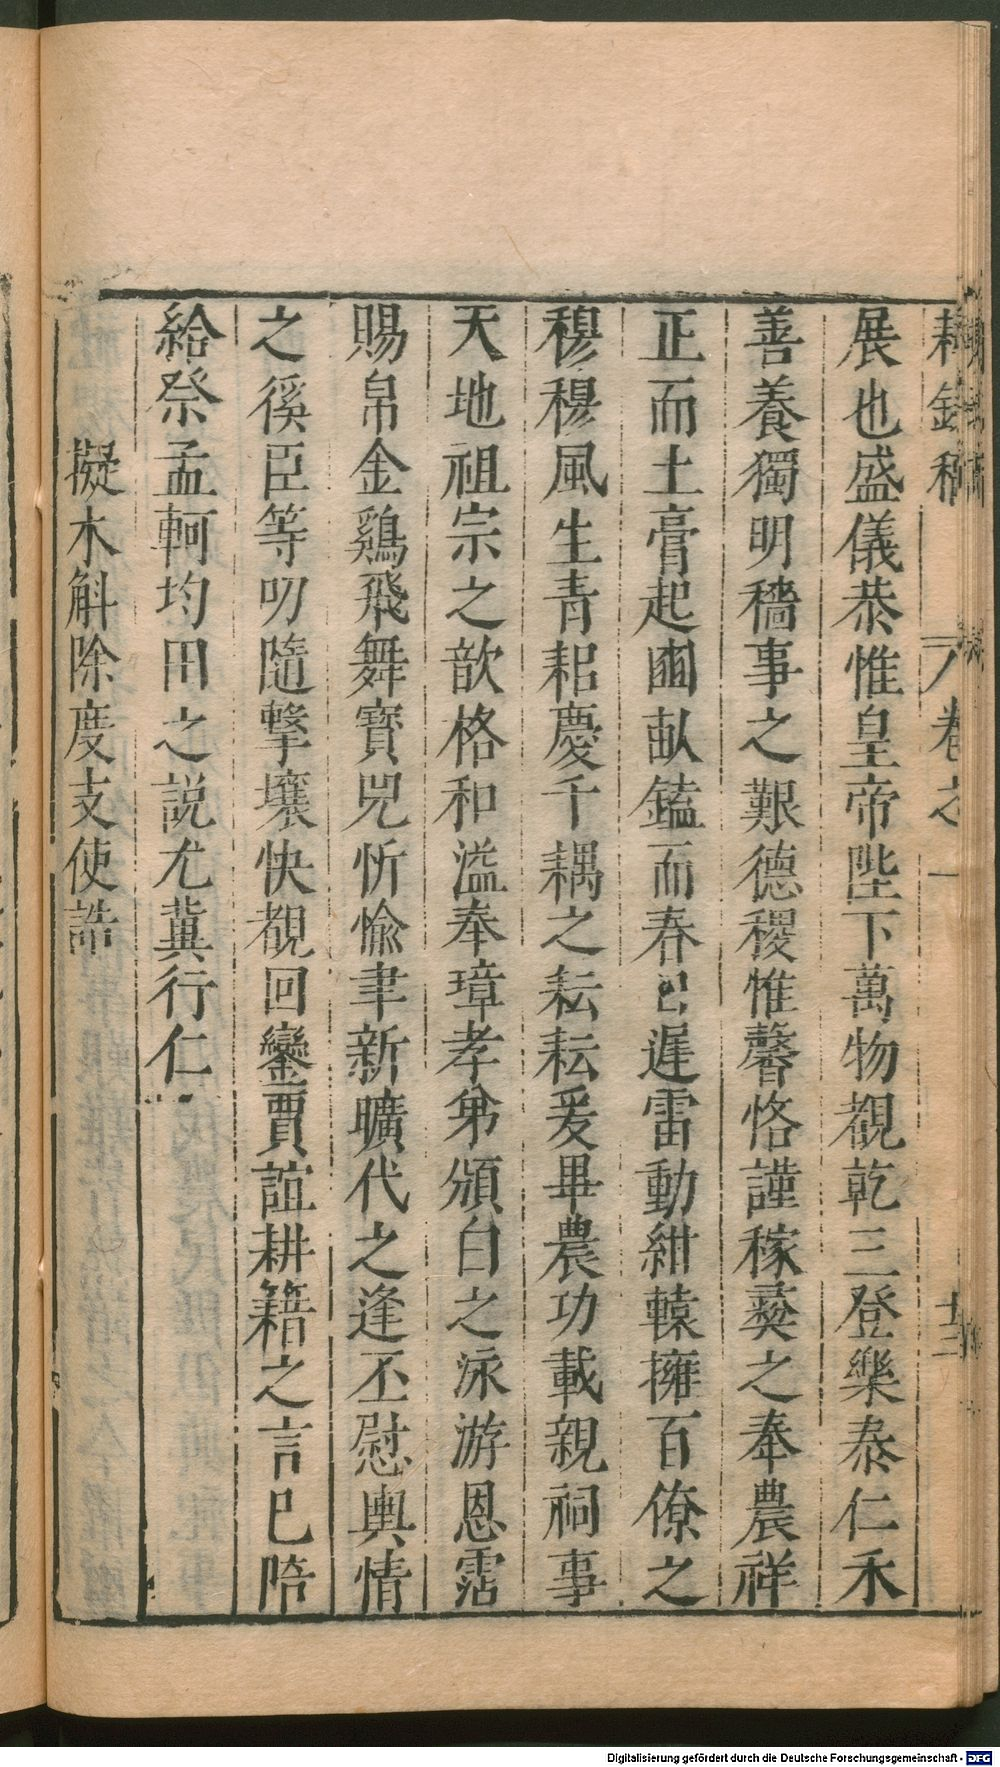 耕餘稿 卷之一 十三
展也盛儀恭惟皇帝陛下萬物覩乾三登樂泰仁禾
善養獨明穡事之艱德稷惟馨恪謹稼蓺之奉農祥
正而土膏起𢌿畝鎑而春已遲雷動紺轅擁百僚之
穆穆風生青耜慶千耦之耘耘爰畢農功載親祠事
天地祖宗之歆格和溢奉璋孝弟頒白之泳游恩霑
賜帛金鷄飛舞寶兕忻愉聿新曠代之逢丕慰輿情
之徯臣等叨隨擊壤快覩回鑾賈誼耕籍之言已啽
給祭孟軻均田之説尤冀行仁
擬木斛除度支使誥
Digitalisierung gefördert durch die Deutsche Forschungsgemeinschaft - DFG